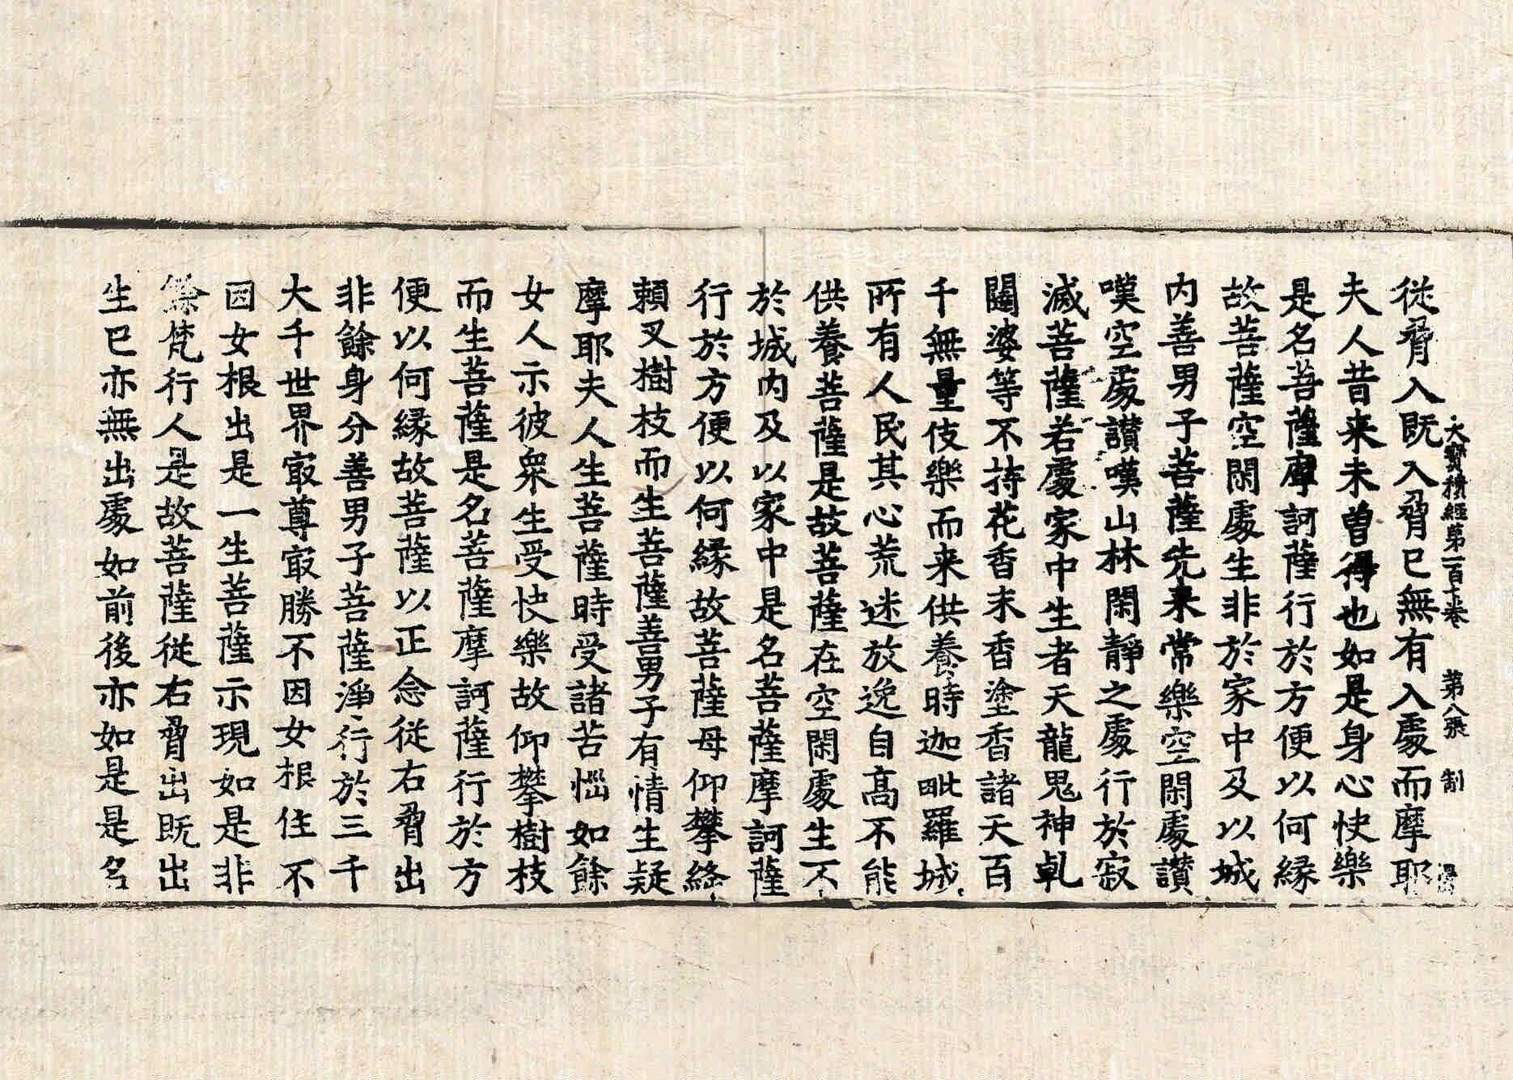 大寶積經第一百七卷 第八張 制
從脅入既入脅已無有入處而摩耶
夫人昔来未曽得也如是身心快樂
是名菩薩摩訶薩行於方便以何縁
故菩薩空閑處生非於家中及以城
内善男子菩薩先来常樂空閑處讃
嘆空處讃嘆山林閑靜之處行於寂
滅菩薩若處家中生者天龍鬼神乹
闥婆等不持花香末香塗香諸天百
千無量伎樂而来供養時迦毗羅城
所有人民其心荒迷放逸自髙不能
供養菩薩是故菩薩在空閑處生不
於城内及以家中是名菩薩摩訶薩
行於方便以何縁故菩薩母仰攀絳
頼叉樹枝而生菩薩善男子有情生疑
摩耶夫人生菩薩時受諸苦惱如餘
女人示彼衆生受快樂故仰攀樹枝
而生菩薩是名菩薩摩訶薩行於方
便以何縁故菩薩以正念從右脅出
非餘身分善男子菩薩淨行於三千
大千世界㝡尊㝡勝不因女根住不
因女根出是一生菩薩示現如是非
餘梵行人是故菩薩從右脅出既出
生已亦無出處如前後亦如是是名